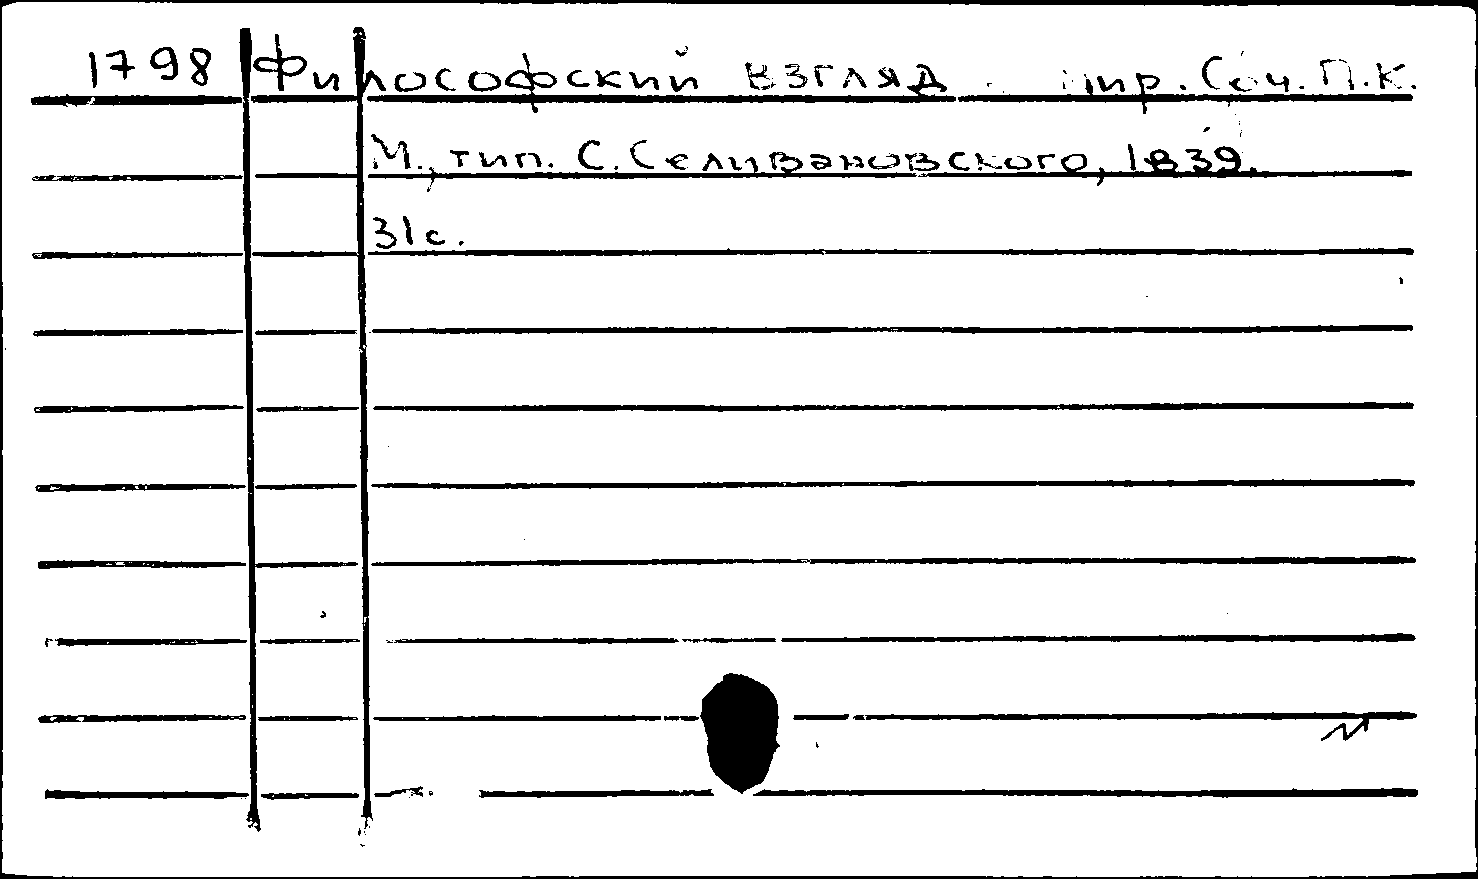 1798 Философский взгляд мир. Соч. П.К.
М., тип. С. Селивановского, 1839.
31с.